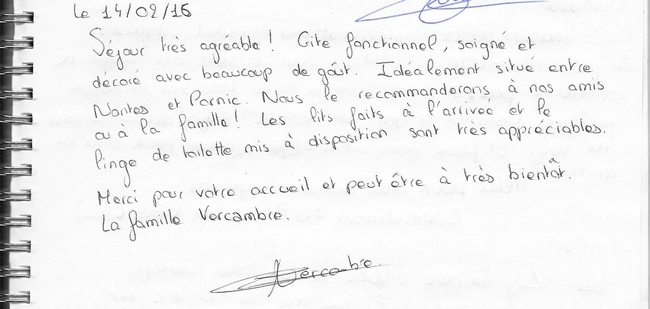 Le 14/02/16
Séjour très agréable! Gîte fonctionnel, soigné et
décoré avec beaucoup de goût. Idéalement situé entre
Nantes et Pornic. Nous le recommanderons à nos amis
ou à la famille! Les lits faits à l'arrivée et le
linge de toilette mis à disposition sont très appréciables.
Merci pour votre accueil et peut être à très bientôt.
La famille Vercambre.
Vercambre